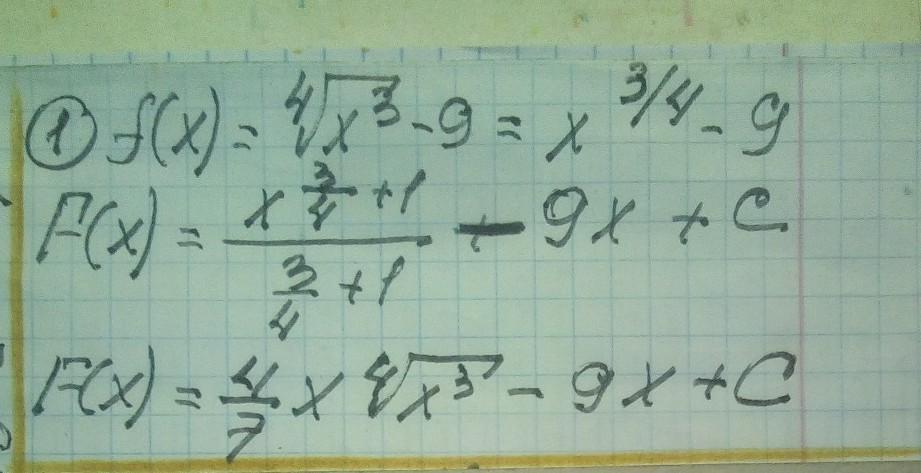 ① f(x) = ∜x³ - 9 = x^(3/4) - 9
F(x) = (x^(3/4 + 1))/(3/4 + 1) - 9x + C
F(x) = 4/7 x ∜x³ - 9x + C